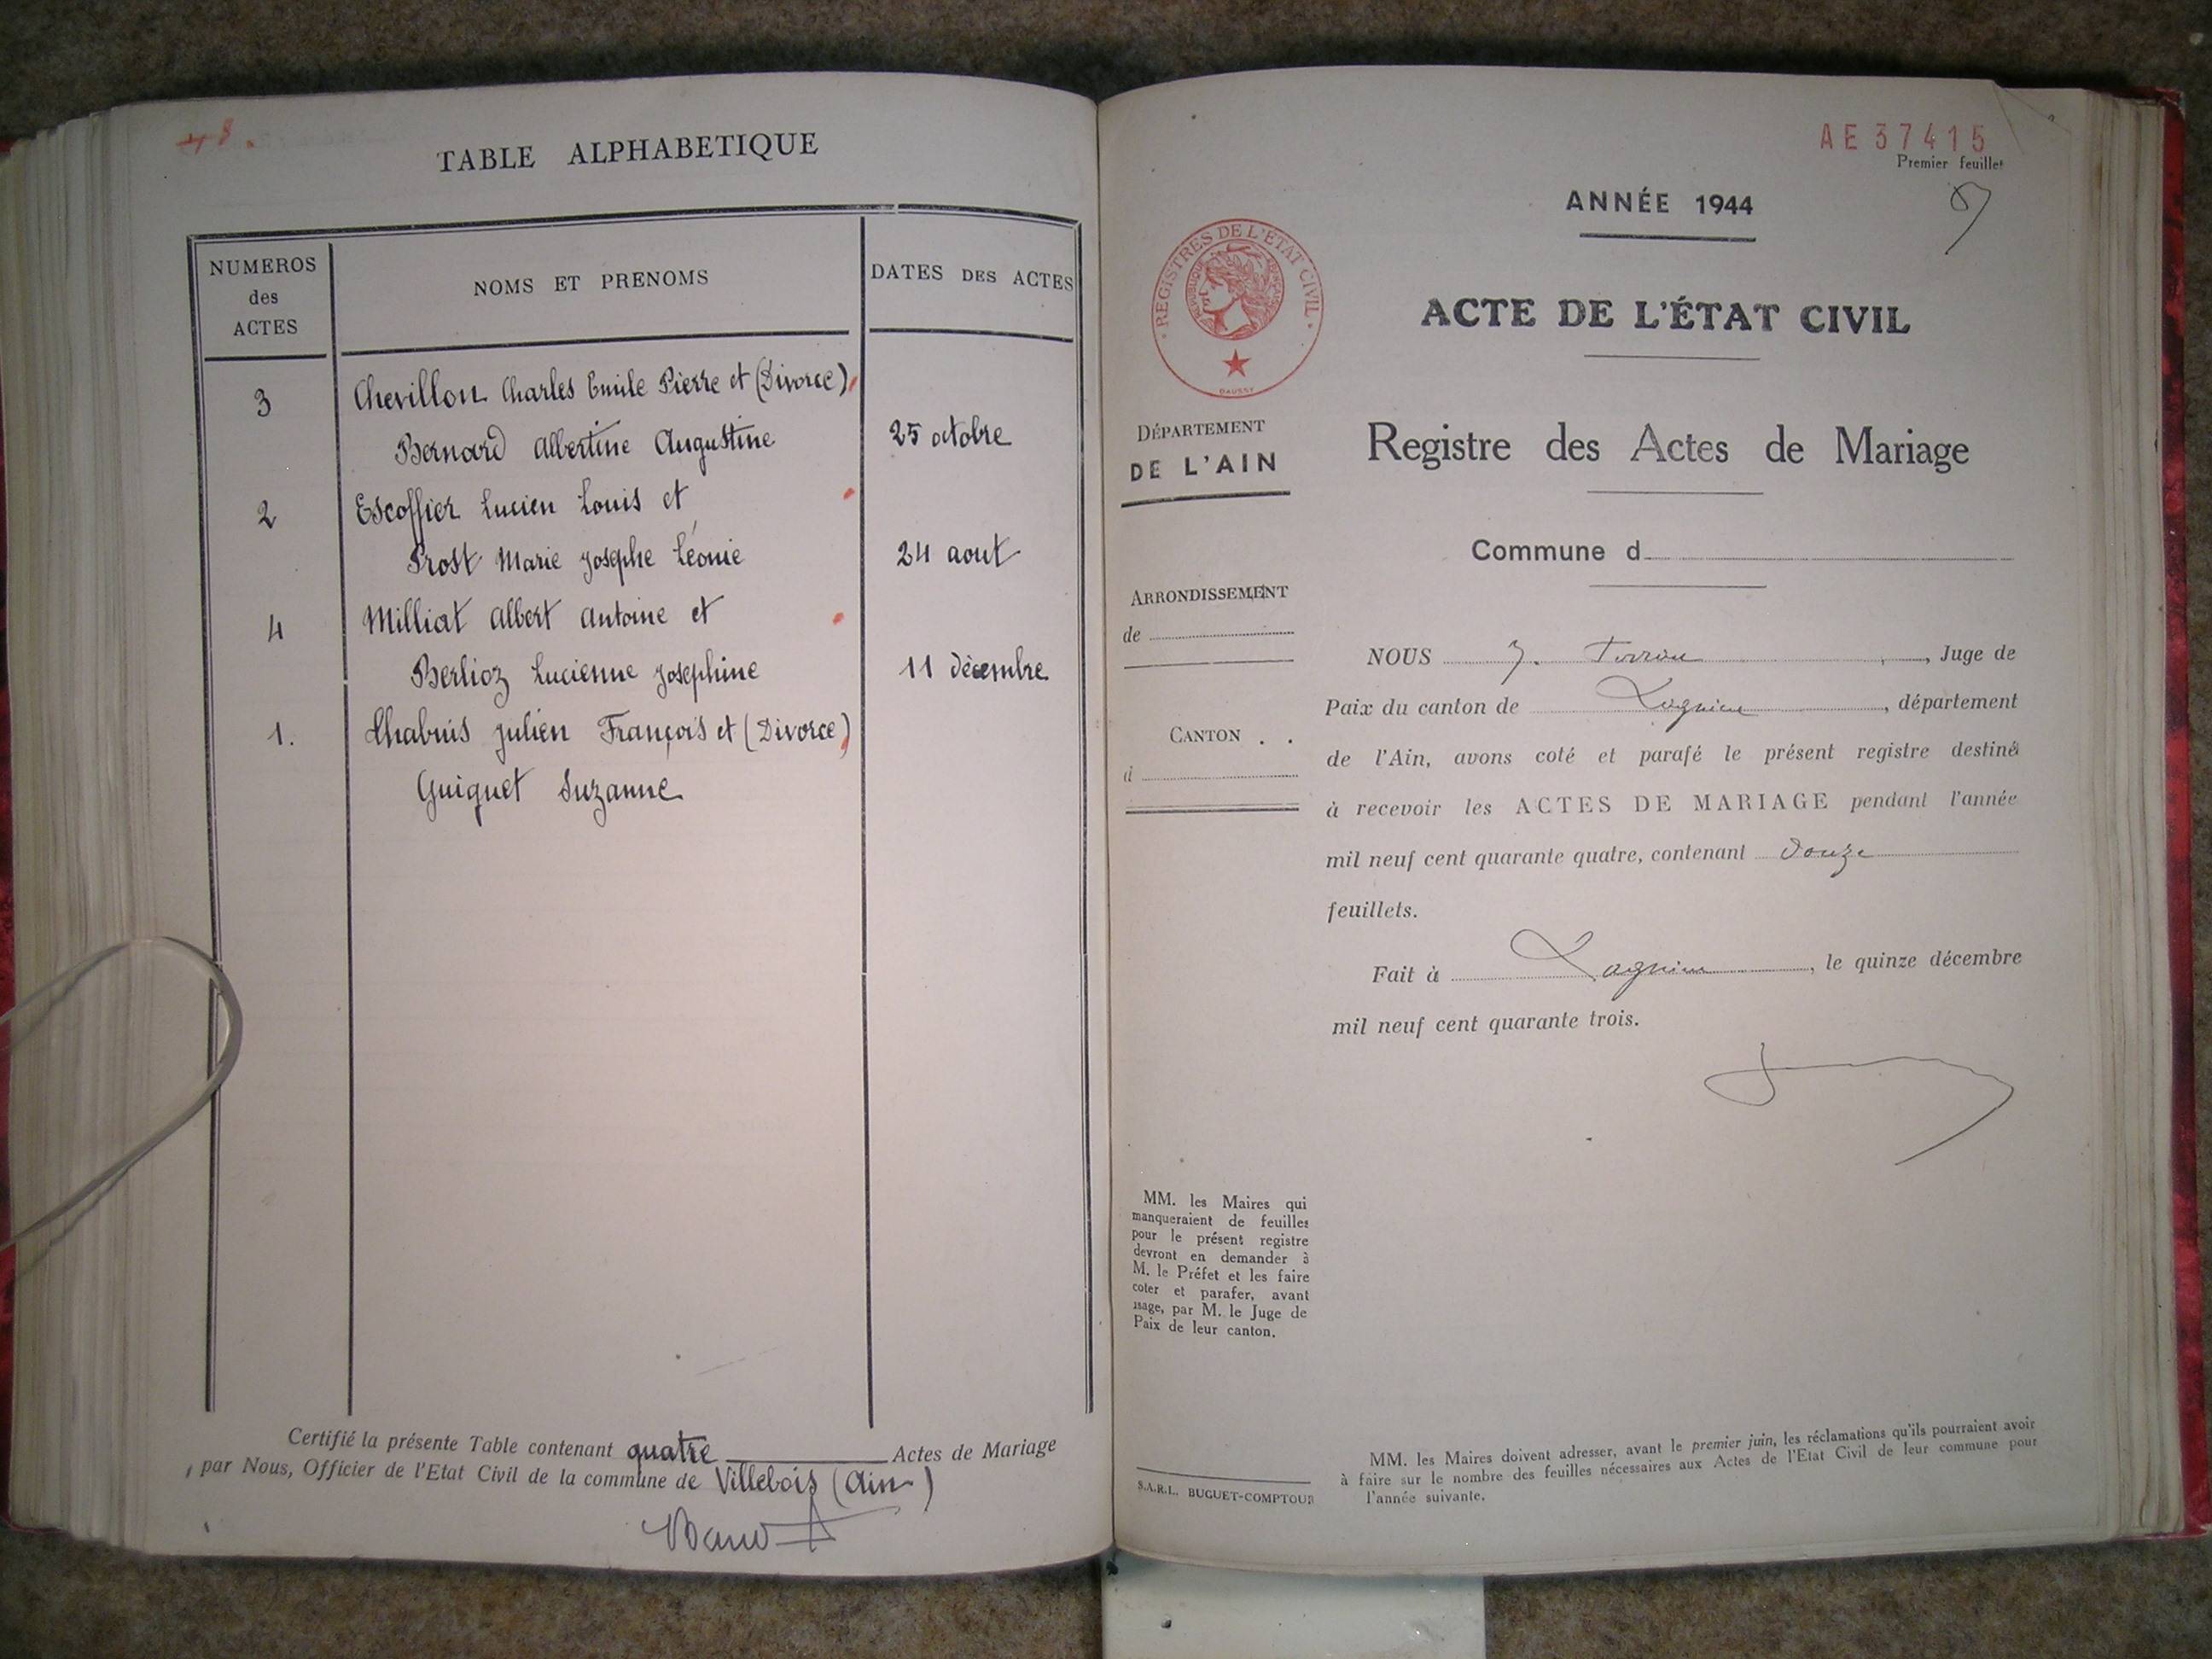 48.
TABLE ALPHABETIQUE
NUMEROS
des
ACTES
NOMS ET PRENOMS
DATES DES ACTES
3
Chevillon Charles Emile Pierre et (Divorce)
Bernard Albertine Augustine
25 octobre
2
Escoffier Lucien Louis et
Prost Marie Josephe Léonie
24 aout
4
Milliat Albert Antoine et
Berlioz Lucienne Josephine
11 décembre
1.
Chabuis Julien François et (Divorce)
Guiguet Suzanne
Certifié la présente Table contenant quatre Actes de Mariage
par Nous, Officier de l'Etat Civil de la commune de Villebois (Ain)
AE37415
Premier feuillet
ANNÉE 1944
REGISTRES DE L'ÉTAT CIVIL
RÉPUBLIQUE FRANÇAISE
ACTE DE L'ÉTAT CIVIL
DÉPARTEMENT
DE L'AIN
Registre des Actes de Mariage
Commune d
ARRONDISSEMENT
de
CANTON . .
d
NOUS J. , Juge de
Paix du canton de Lagnieu, département
de l'Ain, avons coté et parafé le présent registre destiné
à recevoir les ACTES DE MARIAGE pendant l'année
mil neuf cent quarante quatre, contenant douze
feuillets.
Fait à Lagnieu, le quinze décembre
mil neuf cent quarante trois.
MM. les Maires qui
manqueraient de feuilles
pour le présent registre
devront en demander à
M. le Préfet et les faire
coter et parafer, avant
usage, par M. le Juge de
Paix de leur canton.
S.A.R.L. BUGUET-COMPTOUR
MM. les Maires doivent adresser, avant le premier juin, les réclamations qu'ils pourraient avoir
à faire sur le nombre des feuilles nécessaires aux Actes de l'Etat Civil de leur commune pour
l'année suivante.